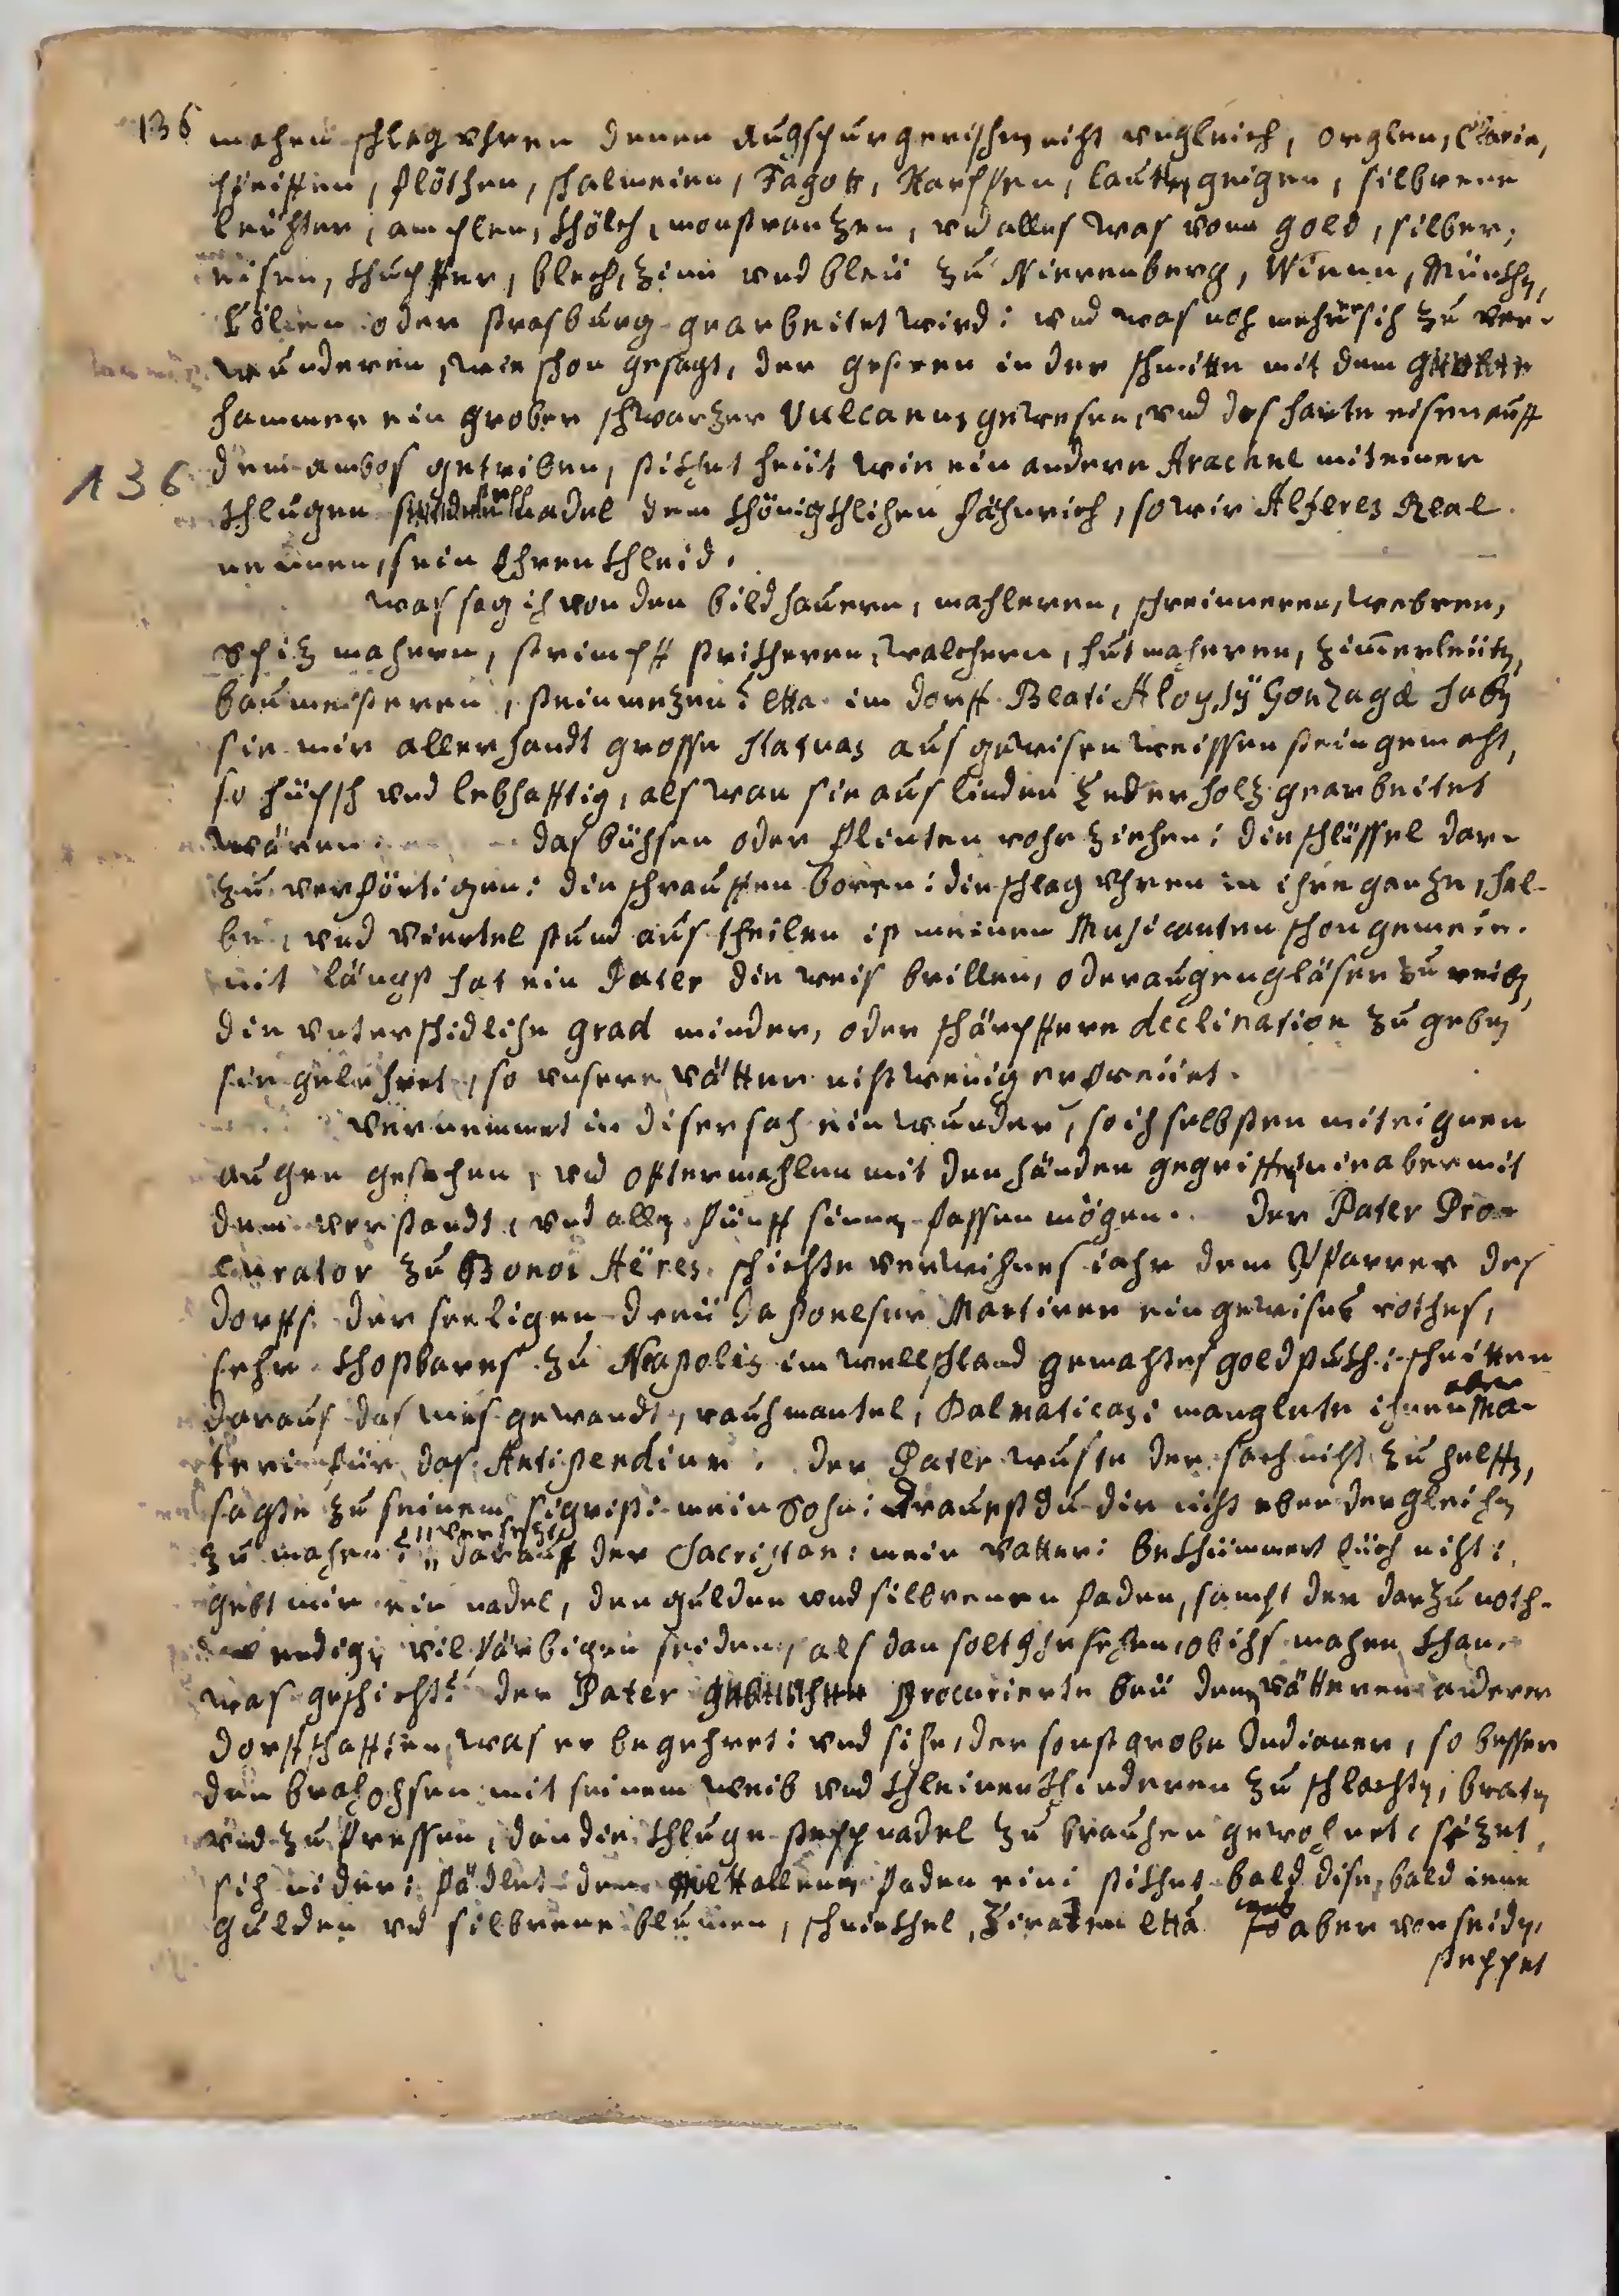 136 machen schlag vhren denen Augspurgerischen nicht vngleich, orglen, Clarin,
pfeiffen, flöthen, schalmeien, Fagott, Harpffen, lauthen, geigen, silbrene
leüchter, amplen, khölch, monstrantzen, vnd alles was vonn gold, silber,
eisen, khupffer, blech, zinn vnd bleü zu Nierenberg, Wienn, München,
Cölen oder strasburg gearbeitet wird: vnd was noch mehr sich zu ver-
wunderen, wie schon gesagt, der gestern in der schmitte mit dem
hammer ein grober schwartzer Vulcanus gewesen, vnd das harte eisen auff
136 dem ambos getriben, stikhet heüt wie ein andere Arachne mit einer
khlugen nadel dem khönigkhlichen fähnrich, so wir Alferez Real
nennen, sein Ehren khleid.
was sag ich von den bildhauern, mahleren, schreinneren, webren,
spiz machern, strimpff strikheren, walchern, hutmacheren, zimerleüth,
baumeisteren, steinmezen? etta. im dorff Beati Aloysÿ Gonzagæ haben
sie mir allerhandt grosse statuas aus gewisen weissen stein gemacht,
so hüpsch vnd lebhafftig, als wan sie aus linden Zederholz gearbeitet
wären. das büchsen oder flinten rohr ziehen: die schlüssel dar-
zu verförtigen: die schrauffen boren: die schlag vhren in ihre gantze, hal-
be, vnd viertel stund austheilen ist meinen Musicanten schon gemein.
nit längst hat ein Pater die weis brillen, oder augengläser zu reiben,
die vnterschidliche grad minder, oder schärpffere declination zu geben
sie gelehret, so vnsere vätter nicht wenig erfreüet.
vernemmet in diser sach ein wunder, so ich selbsten mit eignen
augen gesehen, vnd offtermahlen mit den händen gegriffen, nie aber mit
dem verstandt, vnd allen fünff sinnen fassen mögen. Der Pater Pro-
curator zu Bonos Aëres schickte verwichnes iahr dem Pfarrer des
dorffs der seeligen dreü Martirer ein gewises rothes,
sehr khostbares zu Neapolis im wellschland gemachtes goldstukh: schnitten
daraus das mes gewandt, rauchmantel, Dalmaticas: manglete ihnen aber Ma-
teri für das Antipendium. der Pater wuste der sach nicht zu helffen,
sagte zu seinem sigrist: mein Sohn: Trauest du dir nicht eben dergleichen
zu machen? versetzt darauff der Sacristan: mein Vatter: bekhümmert Eüch nicht:
gebt mir ein nadel, den gulden vnd silbrenen faden, sampt der darzu noth-
wendigen vil färbigen seiden, als dan solt Ihr sehen, ob ichs machen khan.
was geschicht? der Pater procurierte beü denen vätteren anderer
dorffschafften, was er begehret: vnd sihe, der sonst grobe Indianer, so besser
den ochsen mit seinem weib vnd khleinen khinderen zu schlachten, braten
vnd zu fressen, dan die khluge steppnadel zu brauchen gewohnet, sezet
sich nider: fädlet den metallenen faden ein: stikhet bald dise, bald iene
gulden vnd silbrene blumen, schnirkhel, Ziraten etta. was aber von seiden,
steppet